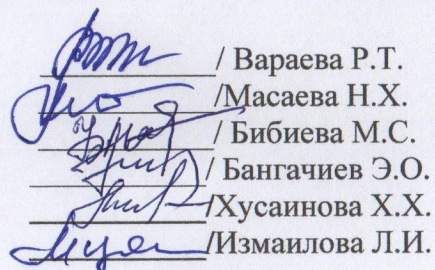 / Вараева Р.Т.
/Масаева Н.Х.
/ Бибиева М.С.
/ Бангачиев Э.О.
/Хусаинова Х.Х.
/Измаилова Л.И.